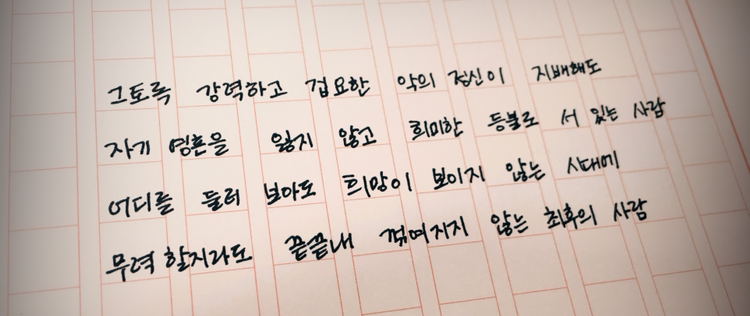 그토록 강력하고 집요한 악의 정신이 지배해도
자기 영혼을 잃지 않고 희미한 등불로 서 있는 사람
어디를 둘러 보아도 희망이 보이지 않는 시대에
무력 할지라도 끝끝내 꺾여지지 않는 최후의 사람